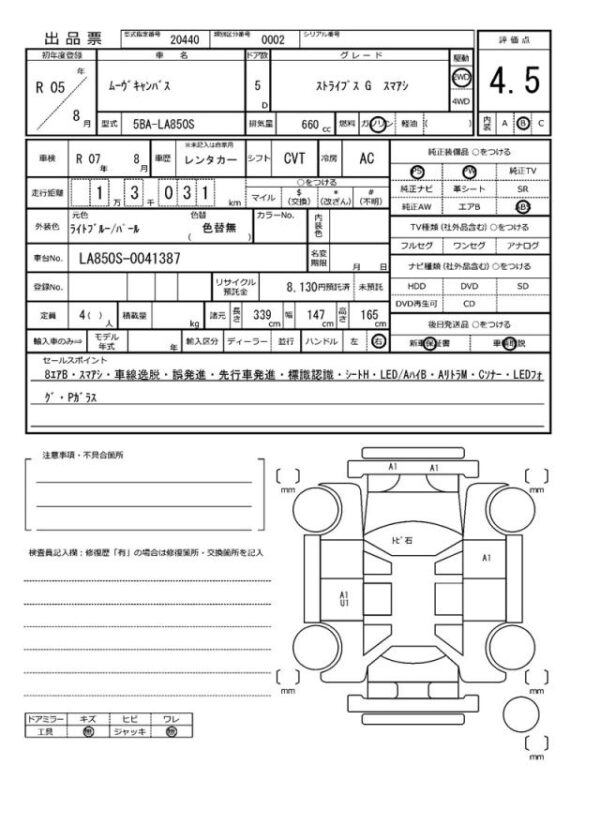 出品票 型式指定番号 20440 類別区分番号 0002 シリアル番号
評価点
初年度登録 車名 ドア数 グレード 駆動
年 R 05 8月
ムーヴキャンバス 5D ストライプス G スマアシ 2WD 4WD
4.5
型式 5BA-LA850S 排気量 660 cc 燃料 ガソリン 軽油 ( )
内装 A B C
車検 R 07年 8月 車歴 ※未記入は自家用 レンタカー シフト CVT 冷房 AC
純正装備品 ○をつける
PS PW 純正TV
純正ナビ 革シート SR
純正AW エアB ABS
走行距離 1万3千031km
○をつける
マイル $(交換) *(改ざん) #(不明)
外装色 元色 ライトブルー/パール 色替 ( 色替無 ) カラーNo. 内装色
TV種類 (社外品含む) ○をつける
フルセグ ワンセグ アナログ
車台No. LA850S-0041387 名変期限 月 日
ナビ種類 (社外品含む) ○をつける
HDD DVD SD
DVD再生可 CD
登録No. リサイクル預託金 8,130円預託済 未預託
定員 4( )人 積載量 kg 諸元 長さ 339cm 幅 147cm 高さ 165cm
後日発送品 ○をつける
新車保証書 車輌取説
輸入車のみ⇒ モデル年式 年 輸入区分 ディーラー 並行 ハンドル 左 右
セールスポイント
8エアB・スマアシ・車線逸脱・誤発進・先行車発進・標識認識・シートH・LED/AハイB・AリトラM・Cソナー・LEDフォ
グ・Pガラス
注意事項・不具合箇所
検査員記入欄：修復歴「有」の場合は修復箇所・交換箇所を記入
A1 A1
( ) mm
( ) mm
トビ石
A1
A1
U1
( ) mm
( ) mm
( ) mm
ドアミラー キズ ヒビ ワレ
工具 無 ジャッキ 無